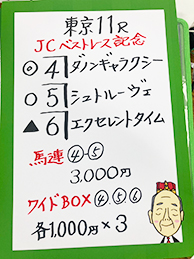 東京11R
JCベストレス記念
◎ 4 ダノンギャラクシー
○ 5 シュトルーヴェ
▲ 6 エクセレントタイム
馬連 ④-⑤
3,000円
ワイドBOX ④⑤⑥
各1,000円×3